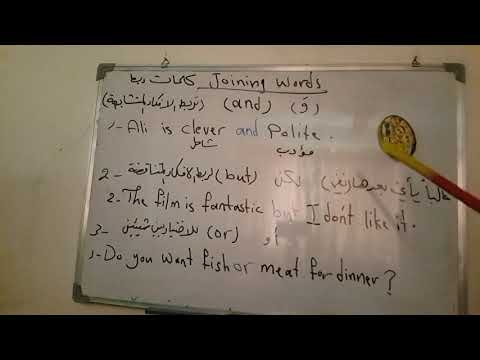 Joining Words كلمات ربط
(تربط الأفكار المتشابهة) (and) (وَ)
1- Ali is clever and Polite.
شاطر مؤدب
2- لكن (but) (تربط الأفكار المتناقضة) (غالباً يأتي بعدها نفي)
2- The film is fantastic but I don't like it.
3- أو (or) للاختيار بين شيئين
1- Do you want fish or meat for dinner?